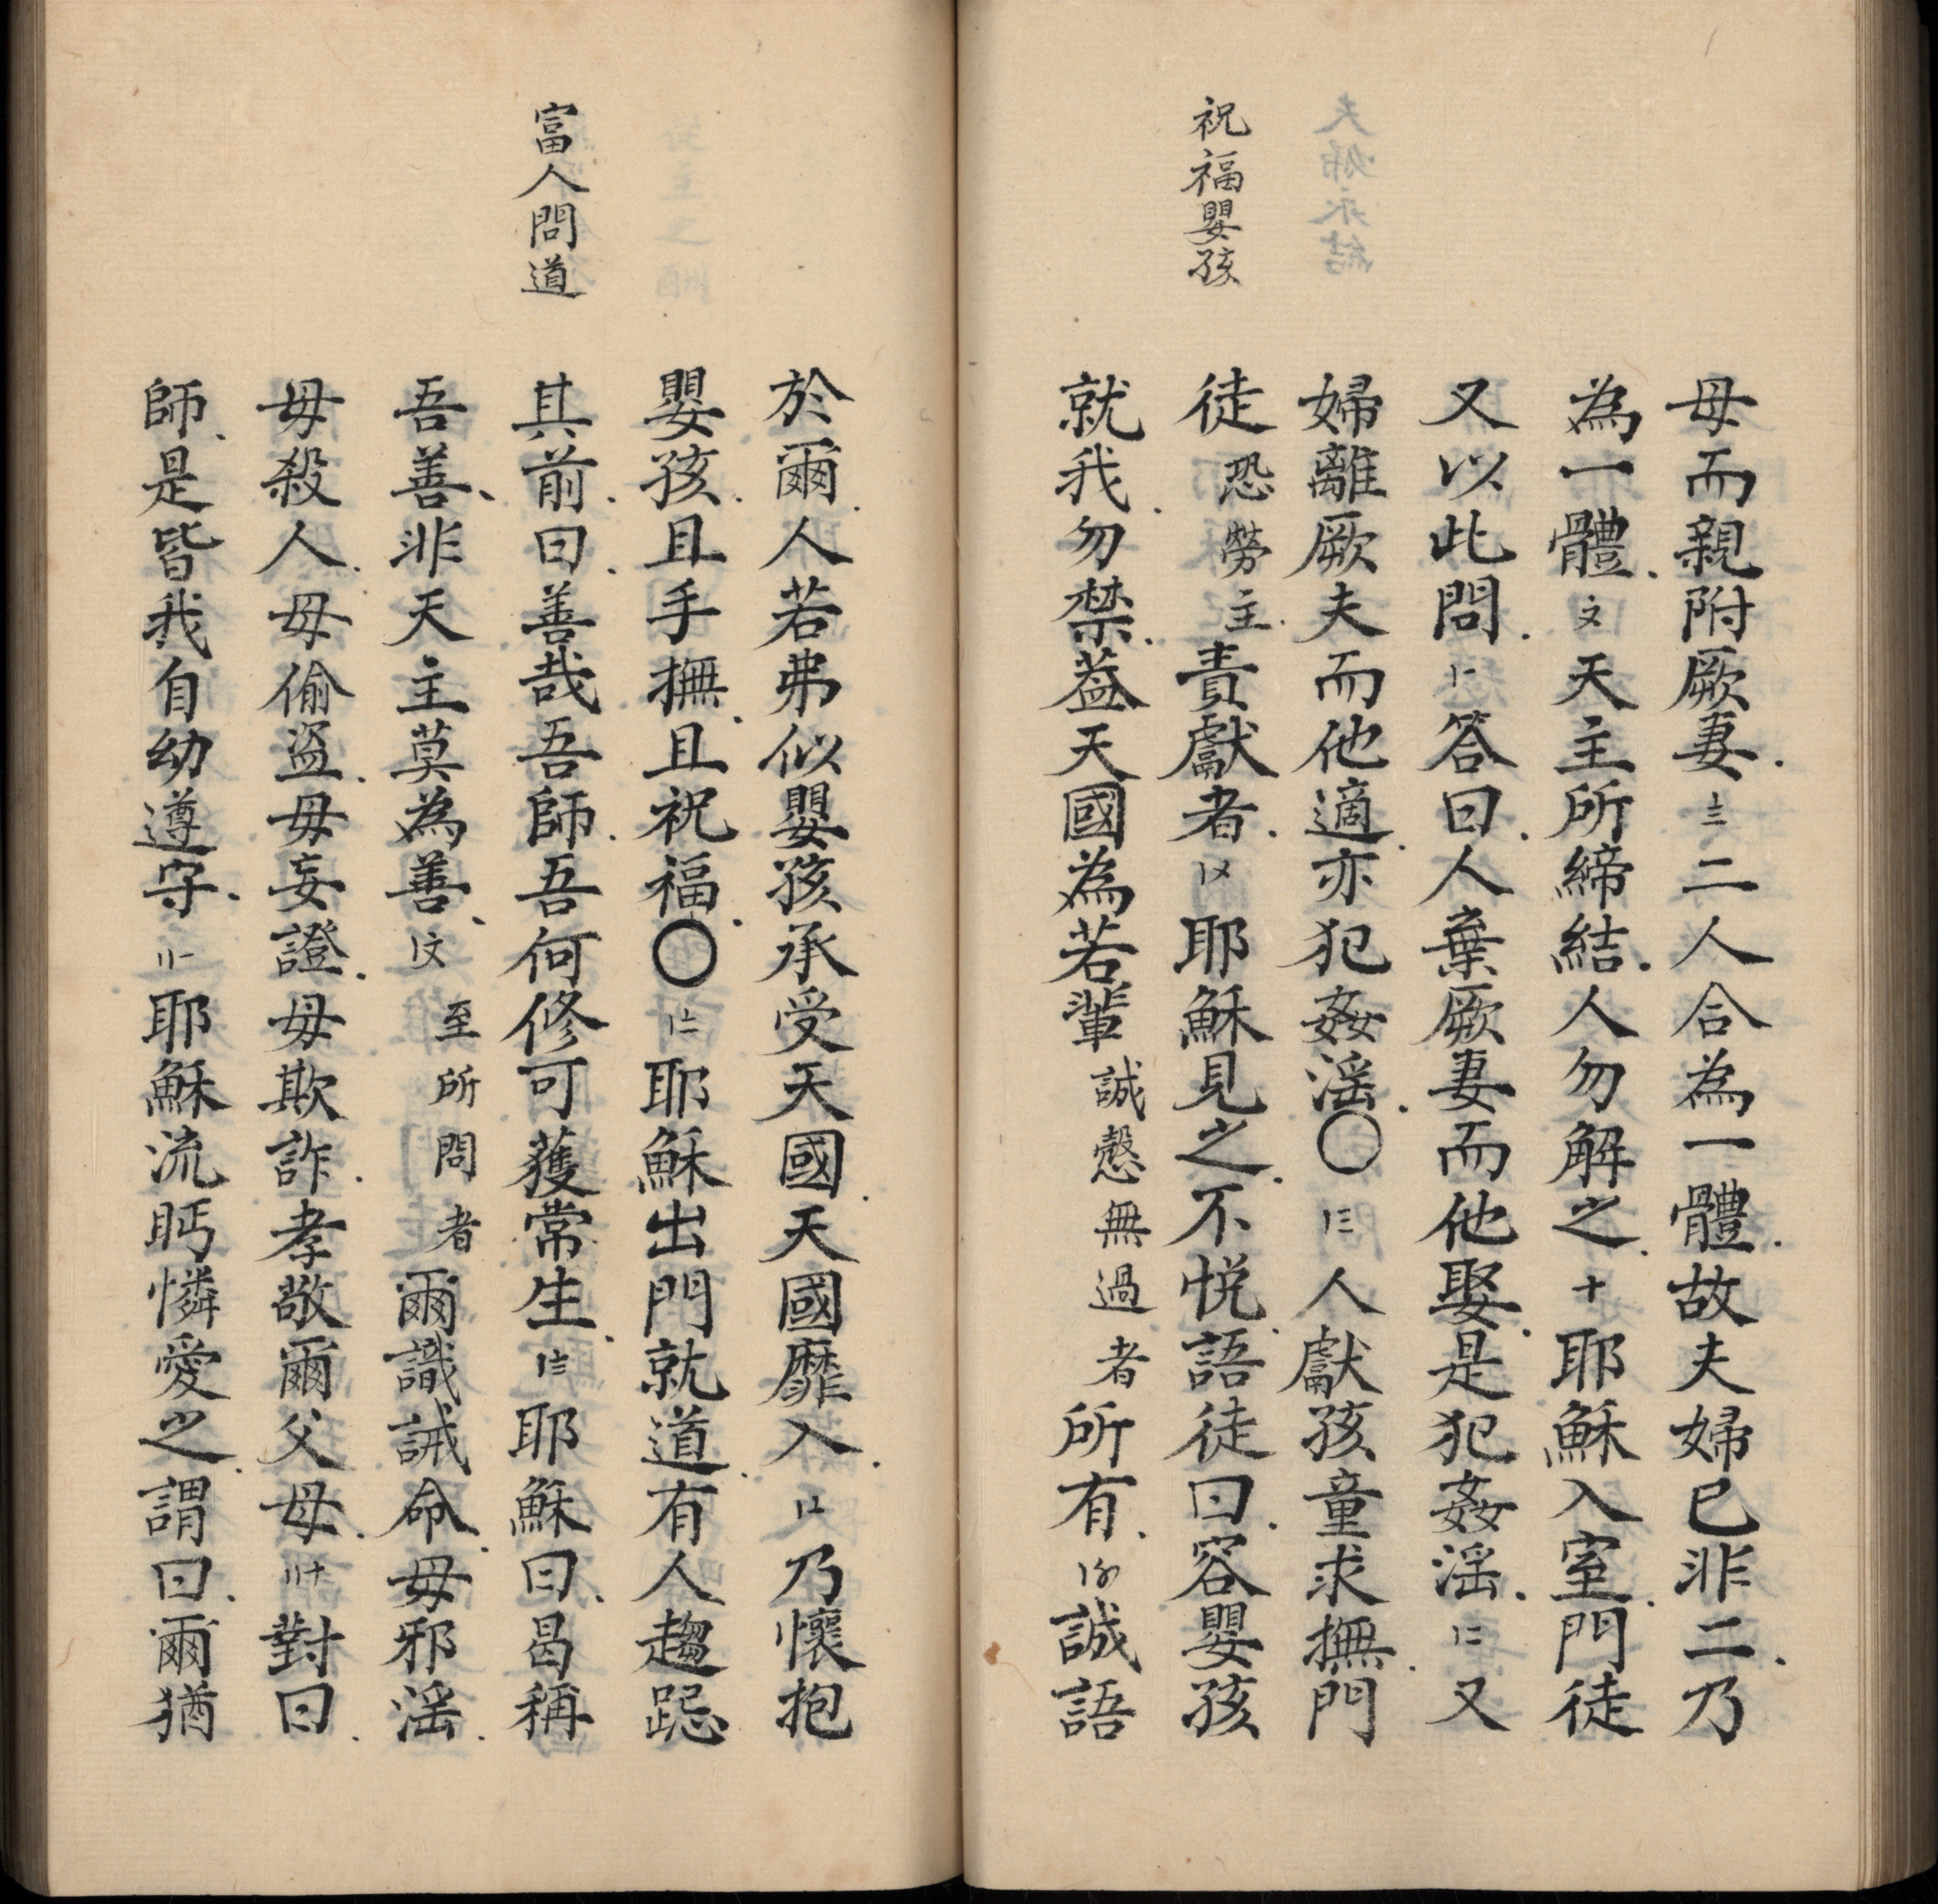 祝福嬰孩
母而親附厥妻.〨二人合為一體.故夫婦已非二.乃
為一體.〩天主所締結.人勿解之.十耶穌入室.門徒
又以此問.〡一答曰.人棄厥妻而他娶.是犯姦淫.〡二又
婦離厥夫而他適.亦犯姦淫.〇〡三人獻孩童求撫.門
徒恐勞主.責獻者.〡〤耶穌見之.不悅.語徒曰.容嬰孩
就我.勿禁.葢天國為若輩誠慤無過者所有.〡〥誠語
富人問道
於爾.人若弗似嬰孩承受天國.天國靡入.〡〦乃懷抱
嬰孩.且手撫.且祝福.〇〡〧耶穌出門就道.有人趨跽
其前.曰.善哉吾師.吾何修可獲常生.〡〨耶穌曰.曷稱
吾善.非天主莫為善.〡〩至所問者爾識誡命.毋邪淫.
毋殺人.毋偷盜.毋妄證.毋欺詐.孝敬爾父母.〢十對曰.
師.是皆我自幼遵守.〢一.耶穌流眄憐愛之.謂曰.爾猶